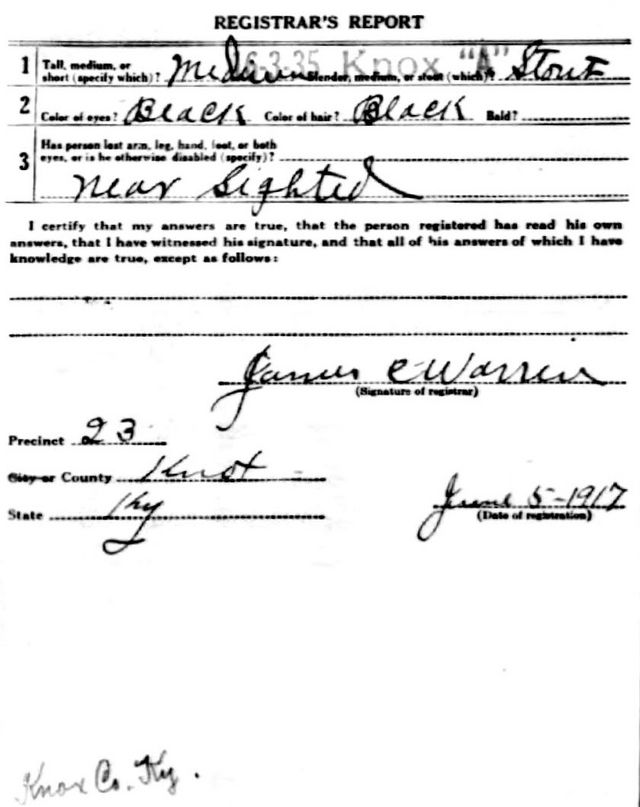 REGISTRAR'S REPORT
16-3-35 Knox "A"
1 Tall, medium, or short (specify which)? Medium Slender, medium, or stout (which)? Stout
2 Color of eyes? Black Color of hair? Black Bald?
3 Has person lost arm, leg, hand, foot, or both
eyes, or is he otherwise disabled (specify)?
near Sighted
I certify that my answers are true, that the person registered has read his own
answers, that I have witnessed his signature, and that all of his answers of which I have
knowledge are true, except as follows:
James C Warren
(Signature of registrar)
Precinct 23
City or County Knox
State Ky
June 5-1917
(Date of registration)
Knox Co. Ky.